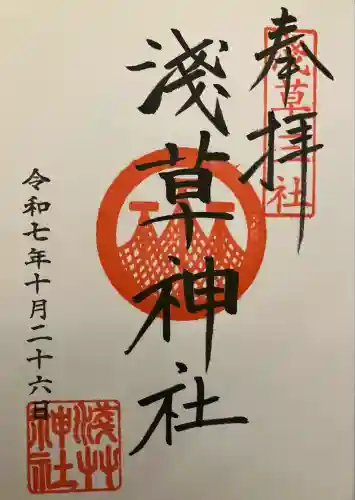 奉拝
淺草三社
淺草神社
令和七年十月二十六日
淺草神社